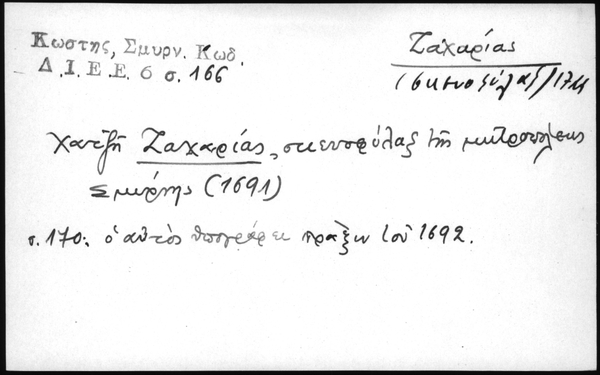 Κωστης, Σμυρν. Κωδ.
Δ.Ι.Ε.Ε. 6 σ. 166
Ζαχαρίας
(σκευοφύλαξ)
Χατζῆ Ζαχαρίας, σκευοφύλαξ τῆς μητροπόλεως
Σμύρνης (1691)
σ. 170: ὁ αὐτὸς ὑπογράφει πρᾶξιν τοῦ 1692.